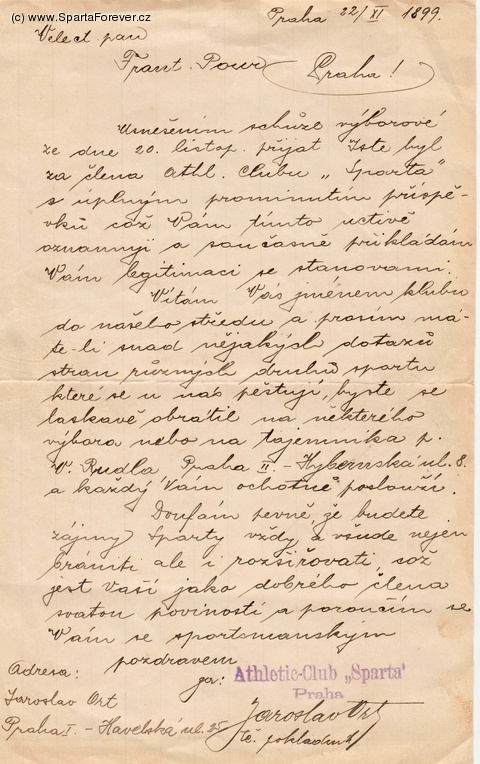 (c) www.SpartaForever.cz
Praha 22/XI 1899.
Velect. pan
Frant. Pour Praha!
Usnešením schůze výborové
ze dne 20. listop. přijat Jste byl
za člena Athl. Clubu „Sparta“
s úplným prominutím příspě-
vků což Vám tímto uctivě
oznamuji a současně přikládám
Vám legitimaci se stanovami.
Vítám Vás jménem klubu
do našeho středu a prosím má-
te-li snad nějakých dotazů
stran různých druhů sportu
které se u nás pěstují, byste se
laskavě obrátil na některého
výbora nebo na tajemníka p.
V. Rudla Praha II. - Hybernská ul. 8.
a každý Vám ochotně poslouží.
Doufám pevně, že budete
zájmy Sparty vždy a všude nejen
brániti ale i rozšiřovati, což
jest Vaší jako dobrého člena
svatou povinností a poroučím se
Vám se sportsmanským
pozdravem
za: Athletic-Club „Sparta“
Praha
Adresa:
Jaroslav Ort
Praha I. - Havelská ul. 25
Jaroslav Ort
tč. pokladník